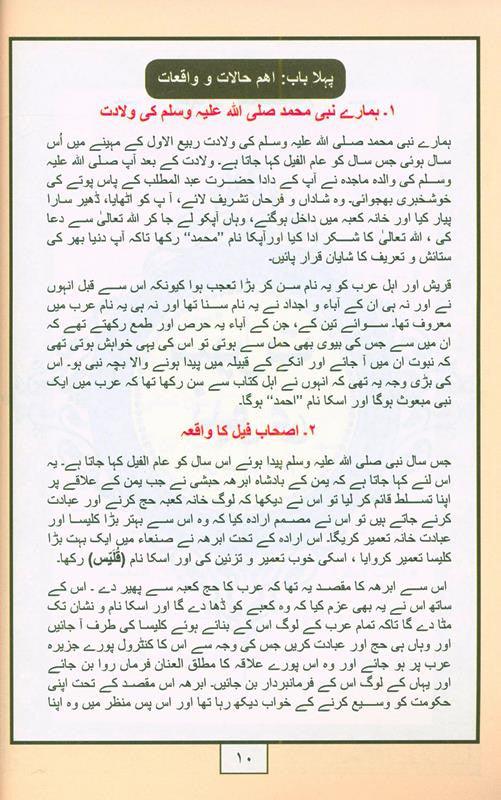 پہلا باب: اہم حالات و واقعات
۱۔ ہمارے نبی محمد صلی اللہ علیہ وسلم کی ولادت
ہمارے نبی محمد صلی اللہ علیہ وسلم کی ولادت ربیع الاول کے مہینے میں اُس
سال ہوئی جس سال کو عام الفیل کہا جاتا ہے۔ ولادت کے بعد آپ صلی اللہ علیہ
وسلم کی والدہ ماجدہ نے آپ کے دادا حضرت عبد المطلب کے پاس پوتے کی
خوشخبری بھجوائی۔ وہ شاداں و فرحاں تشریف لائے، آ پ کو اٹھایا، ڈھیر سارا
پیار کیا اور خانہ کعبہ میں داخل ہوگئے، وہاں آپکو لے جا کر اللہ تعالیٰ سے دعا
کی ، اللہ تعالیٰ کا شکر ادا کیا اورآپکا نام ”محمد“ رکھا تاکہ آپ دنیا بھر کی
ستائش و تعریف کا شایان قرار پائیں۔
قریش اور اہل عرب کو یہ نام سن کر بڑا تعجب ہوا کیونکہ اس سے قبل انہوں
نے اور نہ ہی ان کے آباء و اجداد نے یہ نام سنا تھا اور نہ ہی یہ نام عرب میں
معروف تھا۔ سوائے تین کے، جن کے آباء یہ حرص اور طمع رکھتے تھے کہ
ان میں سے جس کی بیوی بھی حمل سے ہوتی تو اس کی یہی خواہش ہوتی تھی
کہ نبوت ان میں آ جائے اور انکے کے قبیلہ میں پیدا ہونے والا بچہ نبی ہو۔ اس
کی بڑی وجہ یہ تھی کہ انہوں نے اہل کتاب سے سن رکھا تھا کہ عرب میں ایک
نبی مبعوث ہوگا اور اسکا نام ”احمد“ ہوگا۔
۲۔ اصحاب فیل کا واقعہ
جس سال نبی صلی اللہ علیہ وسلم پیدا ہوئے اس سال کو عام الفیل کہا جاتا ہے۔ یہ
اس لئے کہا جاتا ہے کہ یمن کے بادشاہ ابرھہ حبشی نے جب یمن کے علاقے پر
اپنا تسلط قائم کر لیا تو اس نے دیکھا کہ لوگ خانہ کعبہ حج کرنے اور عبادت
کرنے جاتے ہیں تو اس نے مصمم ارادہ کیا کہ وہ اس سے بہتر بڑا کلیسا اور
عبادت خانہ تعمیر کریگا۔ اس ارادہ کے تحت ابرھہ نے صنعاء میں ایک بہت بڑا
کلیسا تعمیر کروایا ، اسکی خوب تعمیر و تزئین کی اور اسکا نام (قُلَیْس) رکھا۔
اس سے ابرھہ کا مقصد یہ تھا کہ عرب کا حج کعبہ سے پھیر دے ۔ اس کے
ساتھ اس نے یہ بھی عزم کیا کہ وہ کعبے کو ڈھا دے گا اور اسکا نام و نشان تک
مٹا دے گا تاکہ تمام عرب کے لوگ اس کے بنائے ہوئے کلیسا کی طرف آ جائیں
اور وہاں ہی حج اور عبادت کریں جس کی وجہ سے اس کا کنٹرول پورے جزیرہ
عرب پر ہو جائے اور وہ اس پورے علاقہ کا مطلق العنان فرماں روا بن جائے
اور یہاں کے لوگ اس کے فرمانبردار بن جائیں۔ ابرھہ اس مقصد کے تحت اپنی
حکومت کو وسیع کرنے کے خواب دیکھ رہا تھا اور اس پس منظر میں وہ اپنا
۱۰